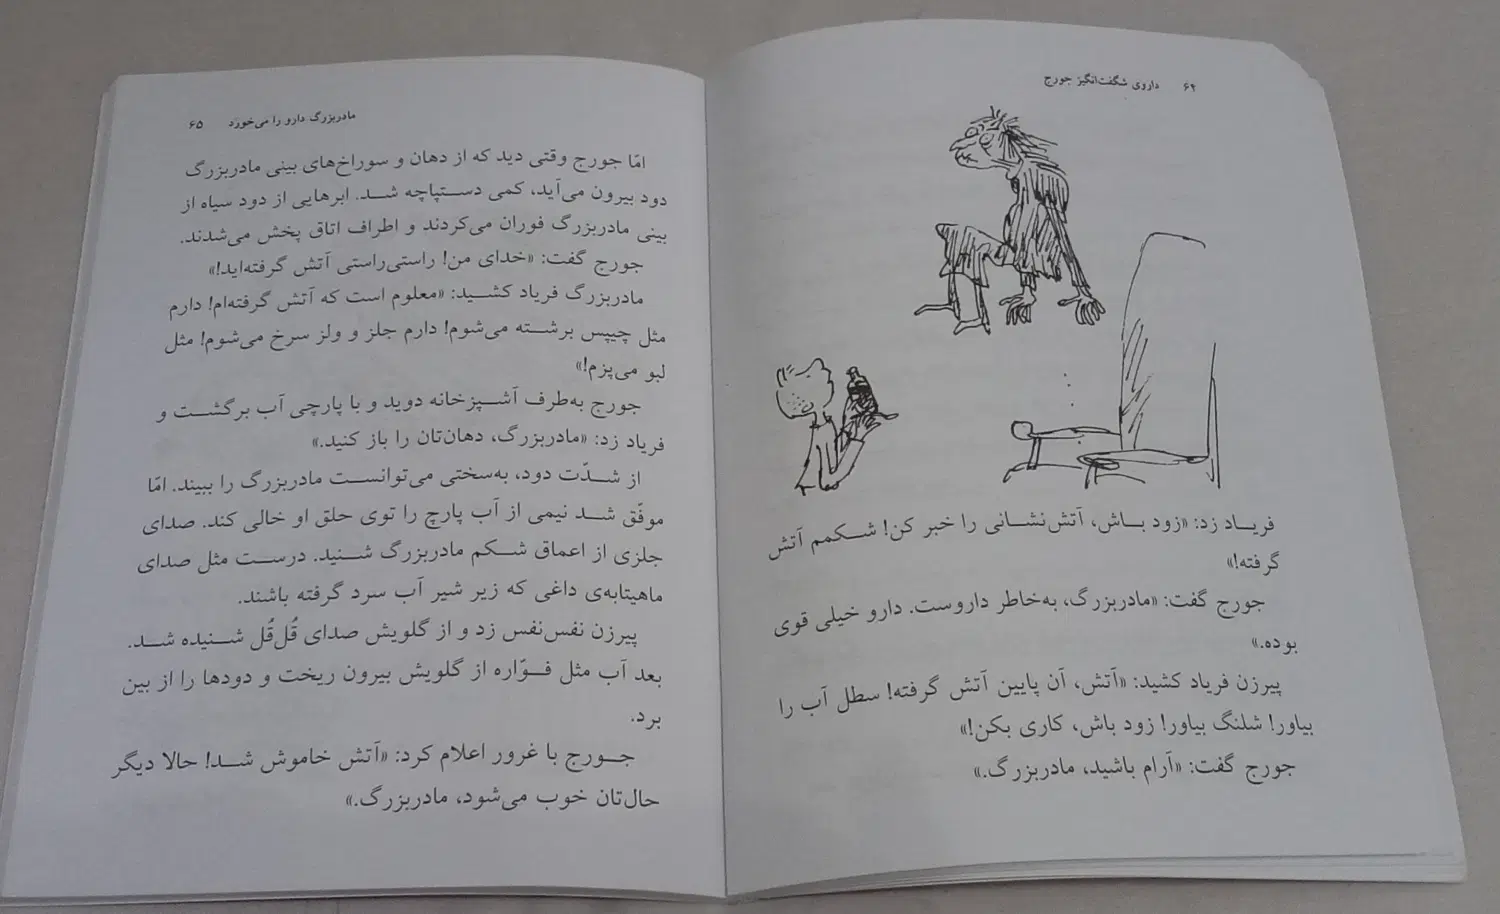 ۶۴ داروی شگفت‌انگیز جورج
فریاد زد: «زود باش، آتش‌نشانی را خبر کن! شکمم آتش
گرفته!»
جورج گفت: «مادربزرگ، به‌خاطر داروست. دارو خیلی قوی
بوده.»
پیرزن فریاد کشید: «آتش، آن پایین آتش گرفته! سطل آب را
بیاور! شلنگ بیاور! زود باش، کاری بکن!»
جورج گفت: «آرام باشید، مادربزرگ.»
مادربزرگ دارو را می‌خورد ۶۵
امّا جورج وقتی دید که از دهان و سوراخ‌های بینی مادربزرگ
دود بیرون می‌آید، کمی دستپاچه شد. ابرهایی از دود سیاه از
بینی مادربزرگ فوران می‌کردند و اطراف اتاق پخش می‌شدند.
جورج گفت: «خدای من! راستی‌راستی آتش گرفته‌اید!»
مادربزرگ فریاد کشید: «معلوم است که آتش گرفته‌ام! دارم
مثل چیپس برشته می‌شوم! دارم جلز و ولز سرخ می‌شوم! مثل
لبو می‌پزم!»
جورج به‌طرف آشپزخانه دوید و با پارچی آب برگشت و
فریاد زد: «مادربزرگ، دهان‌تان را باز کنید.»
از شدّت دود، به‌سختی می‌توانست مادربزرگ را ببیند. امّا
موفّق شد نیمی از آب پارچ را توی حلق او خالی کند. صدای
جلزی از اعماق شکم مادربزرگ شنید. درست مثل صدای
ماهیتابه‌ی داغی که زیر شیر آب سرد گرفته باشند.
پیرزن نفس‌نفس زد و از گلویش صدای قُل‌قُل شنیده شد.
بعد آب مثل فوّاره از گلویش بیرون ریخت و دودها را از بین
برد.
جورج با غرور اعلام کرد: «آتش خاموش شد! حالا دیگر
حال‌تان خوب می‌شود، مادربزرگ.»